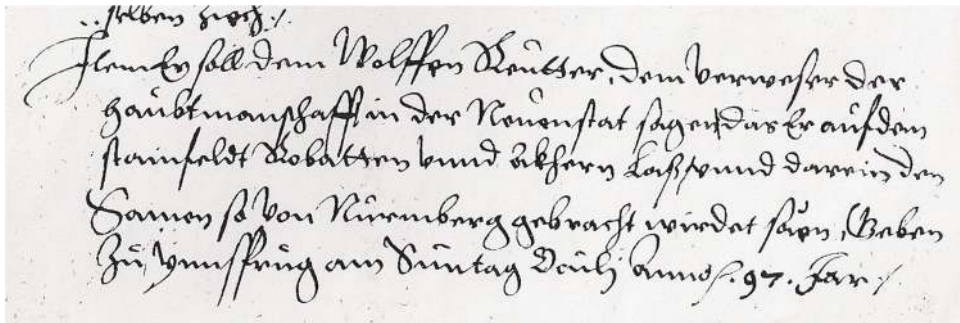 selben zech /
Item Er soll dem Wolffen Reutter, dem verweser der
haubtmanschafft in der Neuenstat sagen, das Er auf dem
stainfeldt Robatten vnnd äkhern Lass, vnnd darein den
Samen so von Nüremberg gebracht wirdet säen, Geben
Zu Ynnsprug am Suntag Oculj Anno /. 97. Jar /